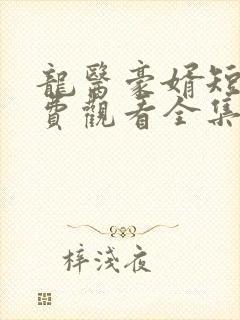 龍醫豪婿短
費觀看全集
梓淺夜